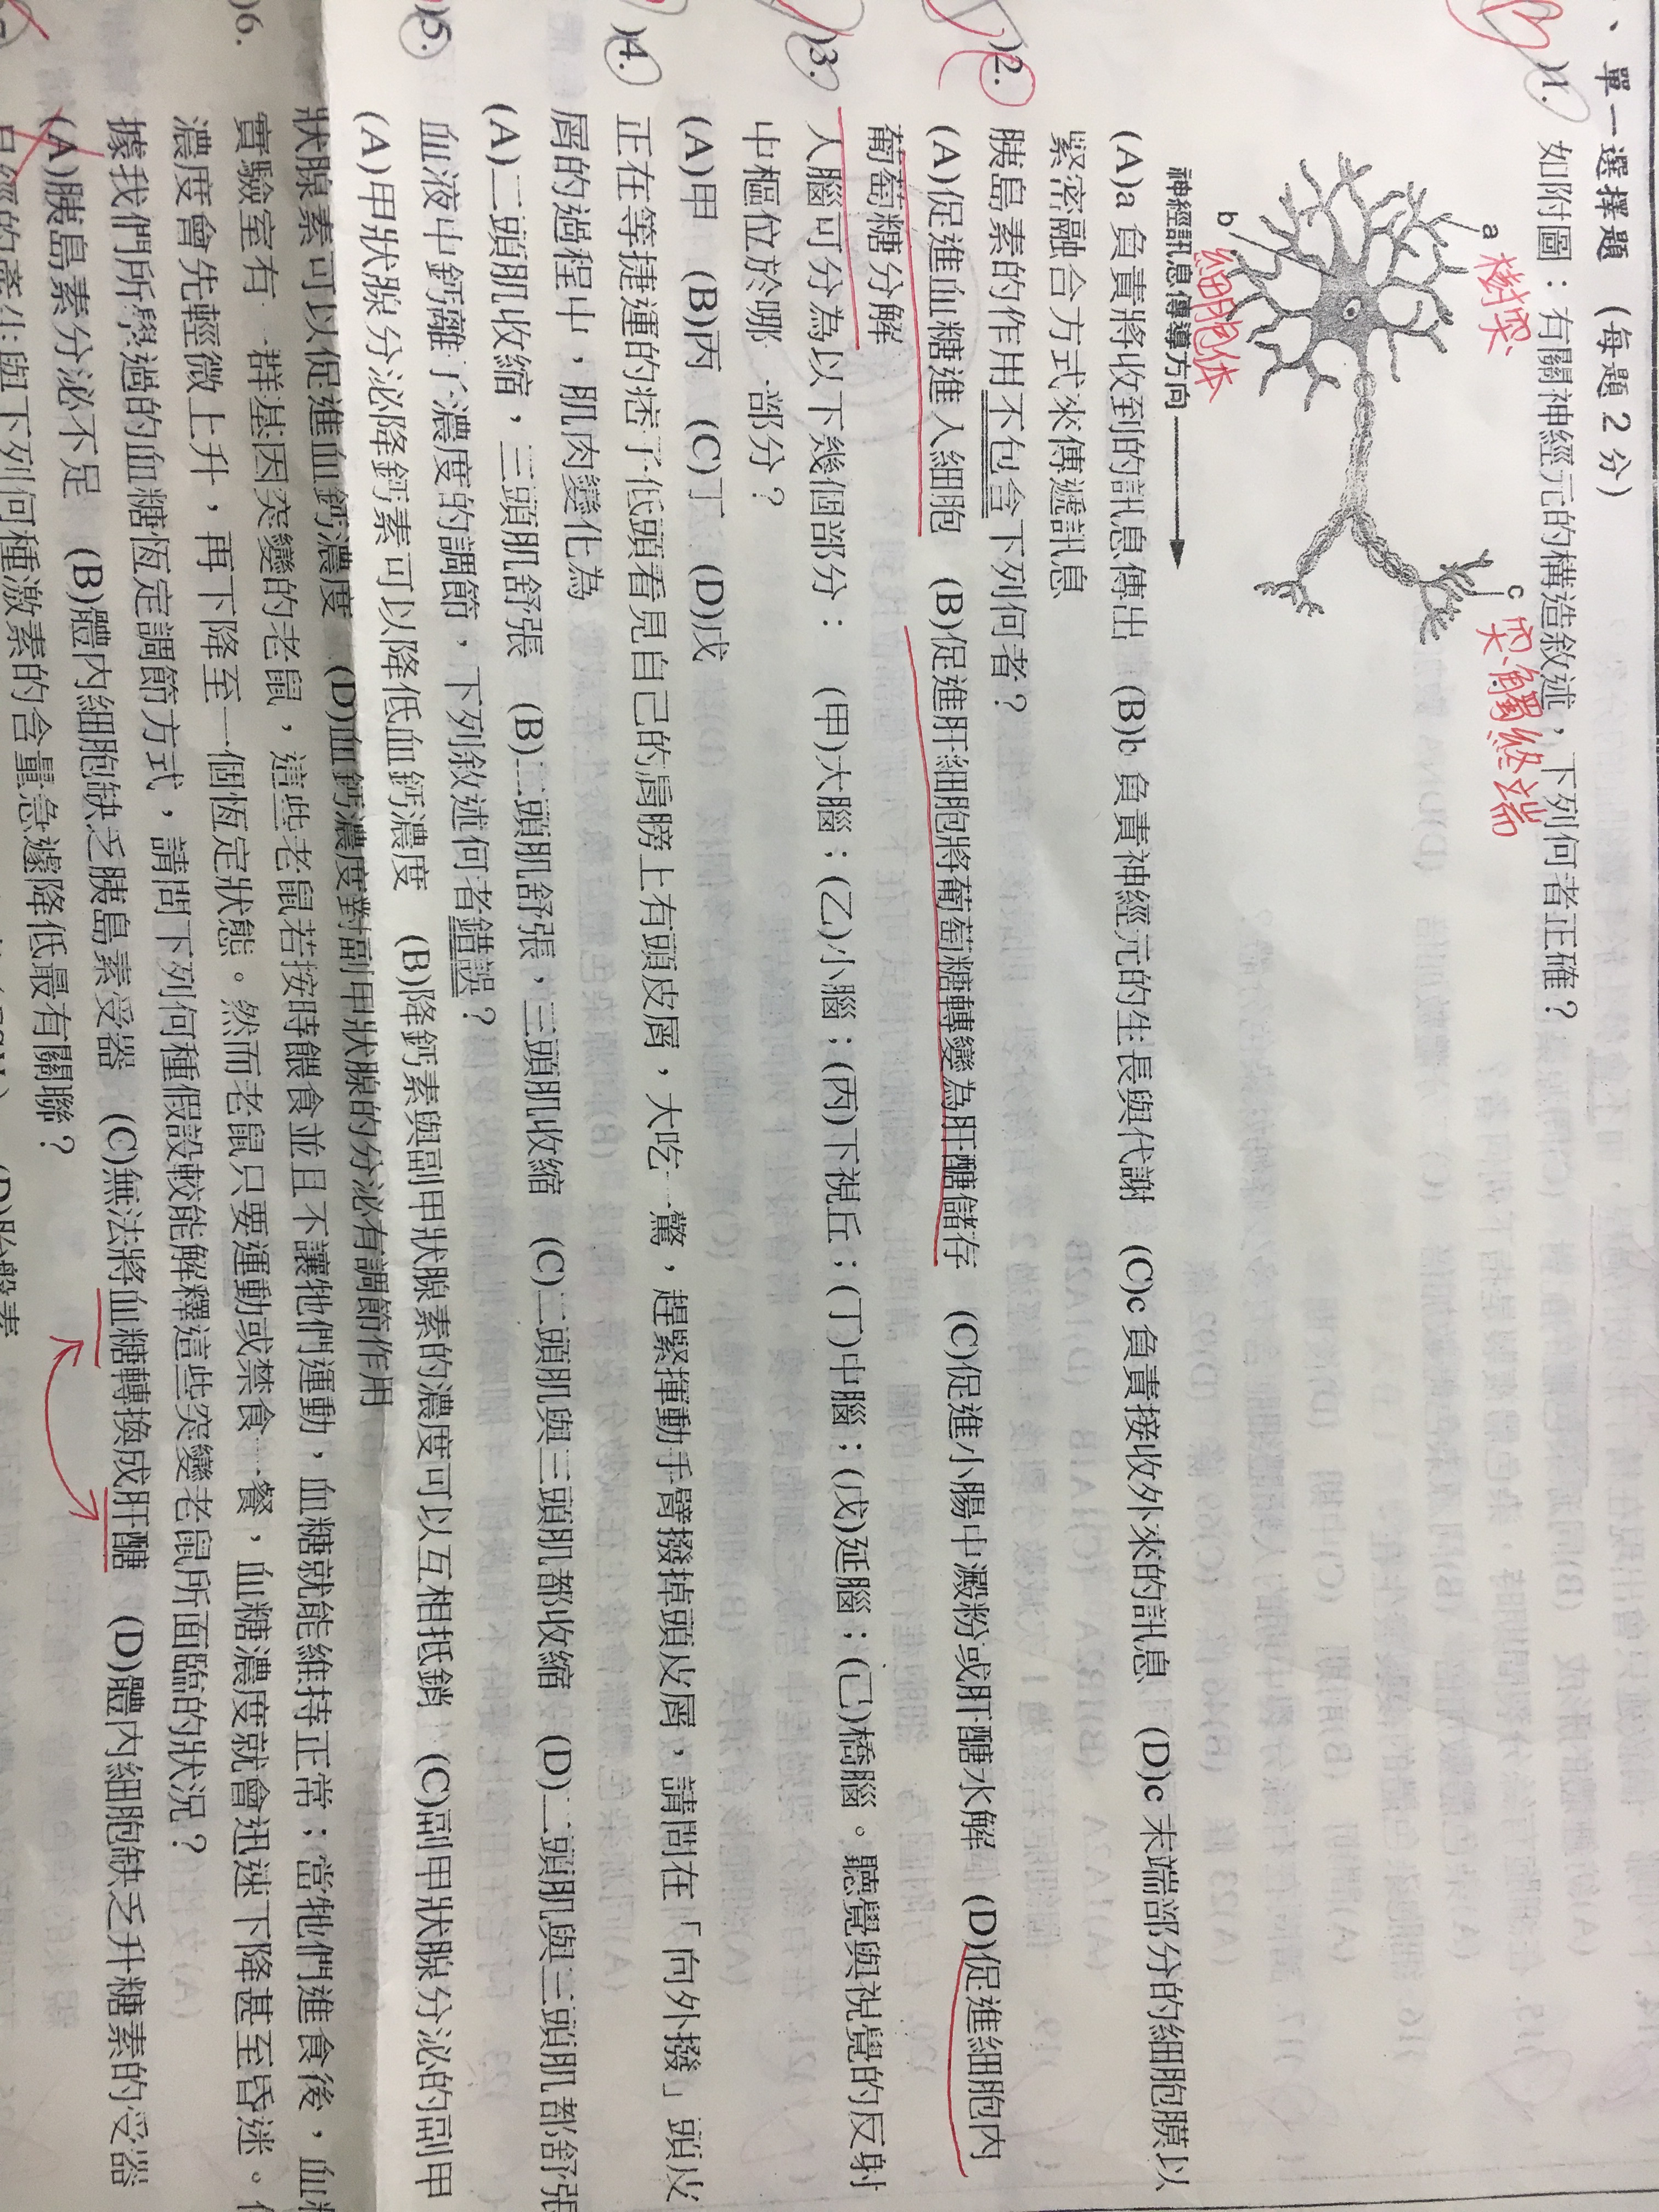 、單一選擇題 (每題2分)
)1. 如附圖：有關神經元的構造敘述，下列何者正確？
a 樹突
c 突觸終端
b 細胞体
神經訊息傳導方向
(A)a 負責將收到的訊息傳出 (B)b 負責神經元的生長與代謝 (C)c 負責接收外來的訊息 (D)c 末端部分的細胞膜以
緊密融合方式來傳遞訊息
)2. 胰島素的作用不包含下列何者？
(A)促進血糖進入細胞 (B)促進肝細胞將葡萄糖轉變為肝醣儲存 (C)促進小腸中澱粉或肝醣水解 (D)促進細胞內
葡萄糖分解
)3. 人腦可分為以下幾個部分： (甲)大腦；(乙)小腦；(丙)下視丘；(丁)中腦；(戊)延腦；(己)橋腦。聽覺與視覺的反射
中樞位於哪一部分？
(A)甲 (B)丙 (C)丁 (D)戊
)4. 正在等捷運的痞子低頭看見自己的肩膀上有頭皮屑，大吃一驚，趕緊揮動手臂撥掉頭皮屑，請問在「向外撥」頭皮
屑的過程中，肌肉變化為
(A)二頭肌收縮，三頭肌舒張 (B)二頭肌舒張，三頭肌收縮 (C)二頭肌與三頭肌都收縮 (D)二頭肌與三頭肌都舒張
)5. 血液中鈣離子濃度的調節，下列敘述何者錯誤？
(A)甲狀腺分泌降鈣素可以降低血鈣濃度 (B)降鈣素與副甲狀腺素的濃度可以互相抵銷 (C)副甲狀腺分泌的副甲
狀腺素可以促進血鈣濃度 (D)血鈣濃度對副甲狀腺的分泌有調節作用
)6. 實驗室有一群基因突變的老鼠，這些老鼠若按時餵食並且不讓牠們運動，血糖就能維持正常；當牠們進食後，血糖
濃度會先輕微上升，再下降至一個恆定狀態。然而老鼠只要運動或禁食一餐，血糖濃度就會迅速下降甚至昏迷。
據我們所學過的血糖恆定調節方式，請問下列何種假設較能解釋這些突變老鼠所面臨的狀況？
(A)胰島素分泌不足 (B)體內細胞缺乏胰島素受器 (C)無法將血糖轉換成肝醣 (D)體內細胞缺乏升糖素的受器
月經的產生與下列何種激素的含量急遽降低最有關聯？